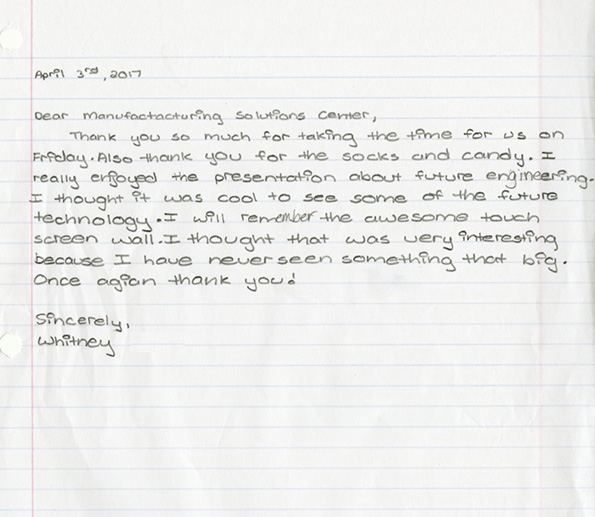 April 3rd, 2017
Dear Manufactacturing Solutions Center,
Thank you so much for taking the time for us on
Friday. Also thank you for the socks and candy. I
really enjoyed the presentation about future engineering.
I thought it was cool to see some of the future
technology. I will remember the awesome touch
screen wall. I thought that was very interesting
because I have never seen something that big.
Once agian thank you!
Sincerely,
Whitney